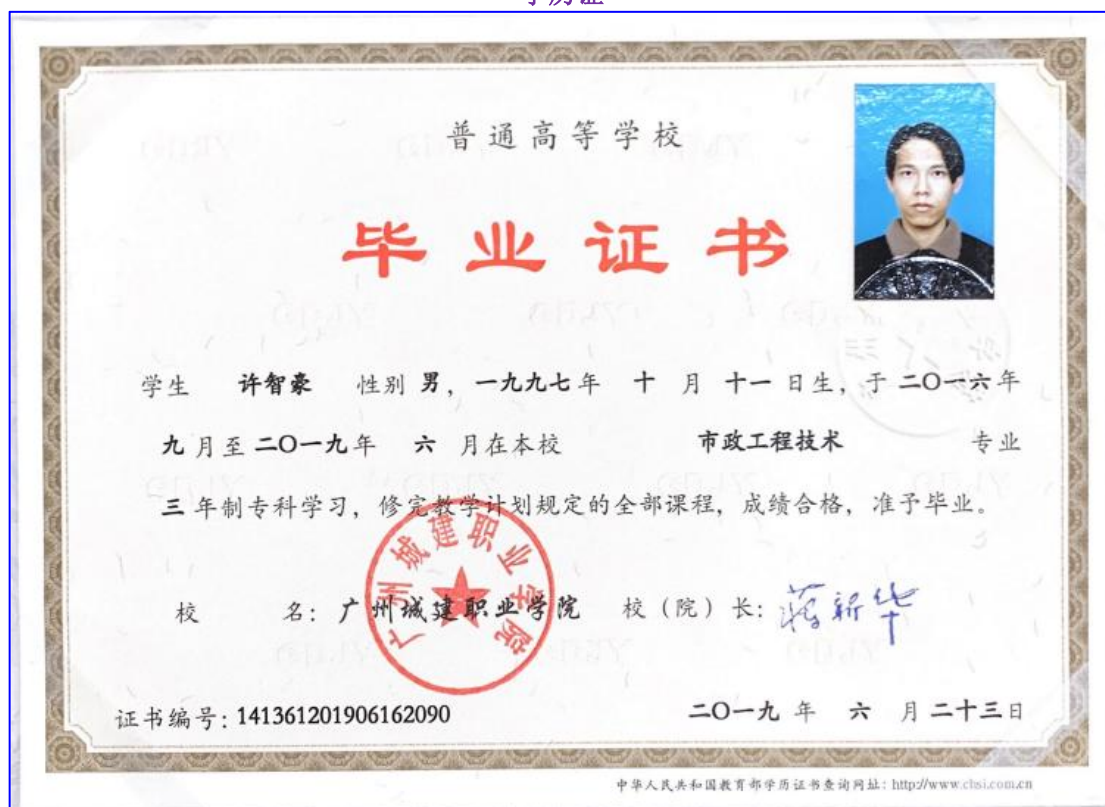 学历证
普通高等学校
毕业证书
学生 许智豪 性别 男，一九九七年 十 月 十一 日生，于 二〇一六年
九 月至 二〇一九年 六 月在本校 市政工程技术 专业
三 年制专科学习，修完教学计划规定的全部课程，成绩合格，准予毕业。
广州城建职业学院
校 名：广州城建职业学院 校（院）长：蒋新华
证书编号：141361201906162090 二〇一九 年 六 月 二十三日
中华人民共和国教育部学历证书查询网址：http://www.chsi.com.cn